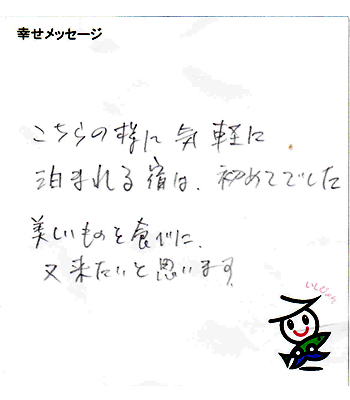 幸せメッセージ
こちらの様に気軽に
泊まれる宿は、初めてでした
美しいものを食べに、
又来たいと思います。